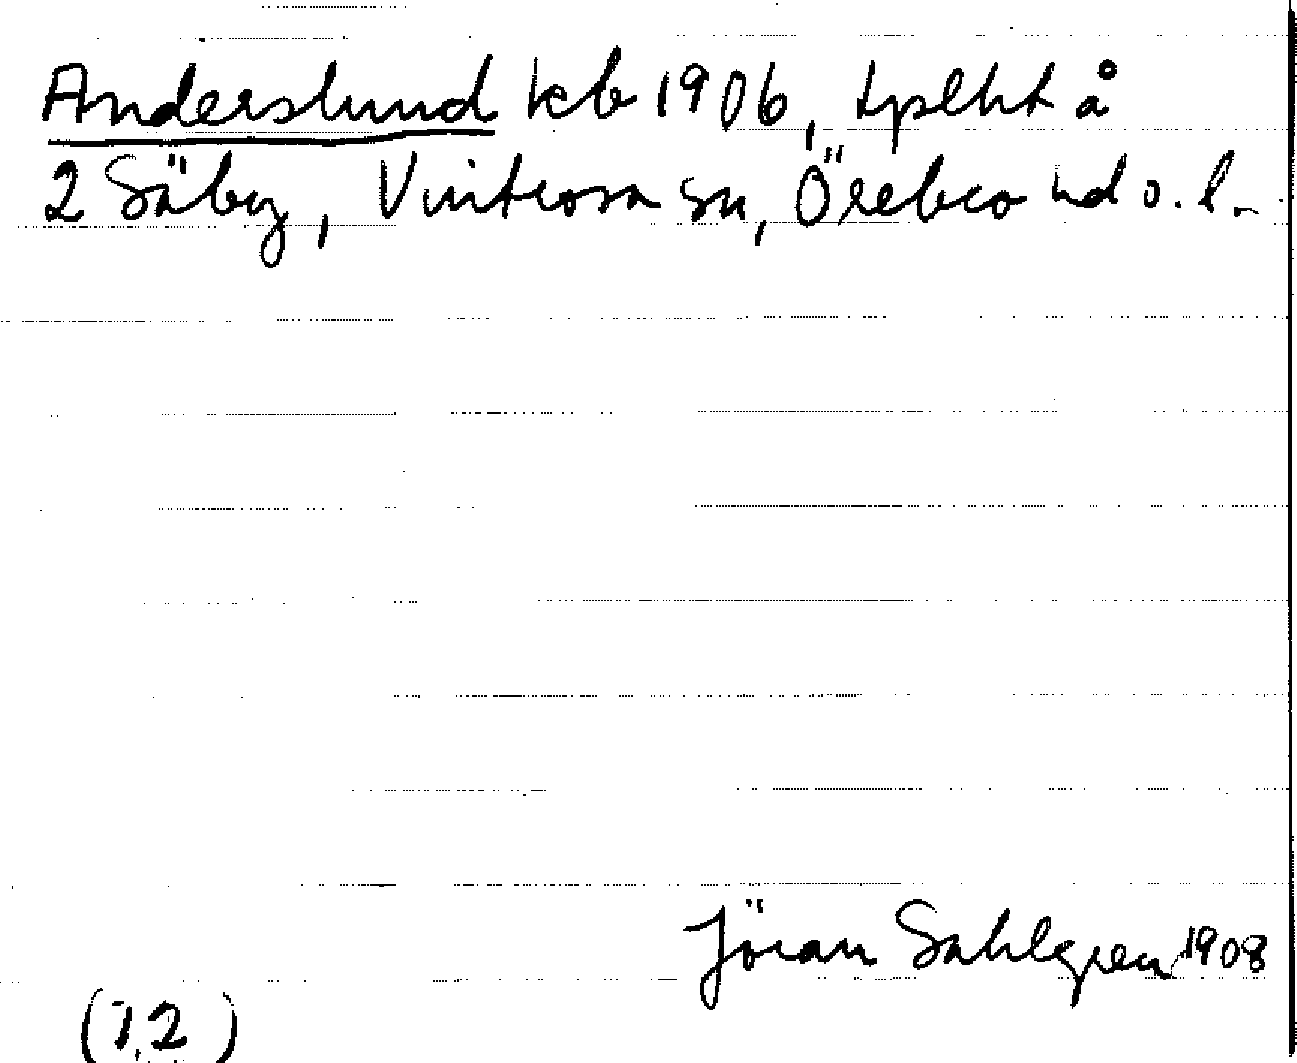 Anderslund kb 1906, tplht å
2 Säby, Vintrosa sn, Örebro hd o. l.
Jöran Sahlgren 1908
(1,2)